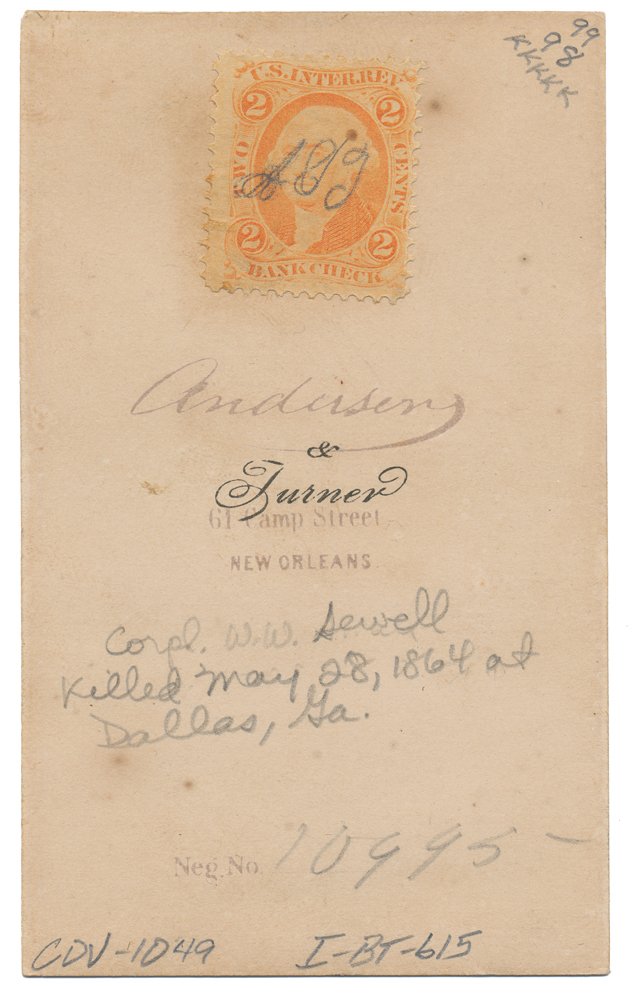 99
98
KKKKK
U.S. INTER. REV.
2 2
TWO CENTS
2 2
BANK CHECK
Anderson
&
Turner
61 Camp Street
NEW ORLEANS
Corpl. W.W. Sewell
Killed May 28, 1864 at
Dallas, Ga.
Neg. No. 10995-
CDV-1049 I-BT-615